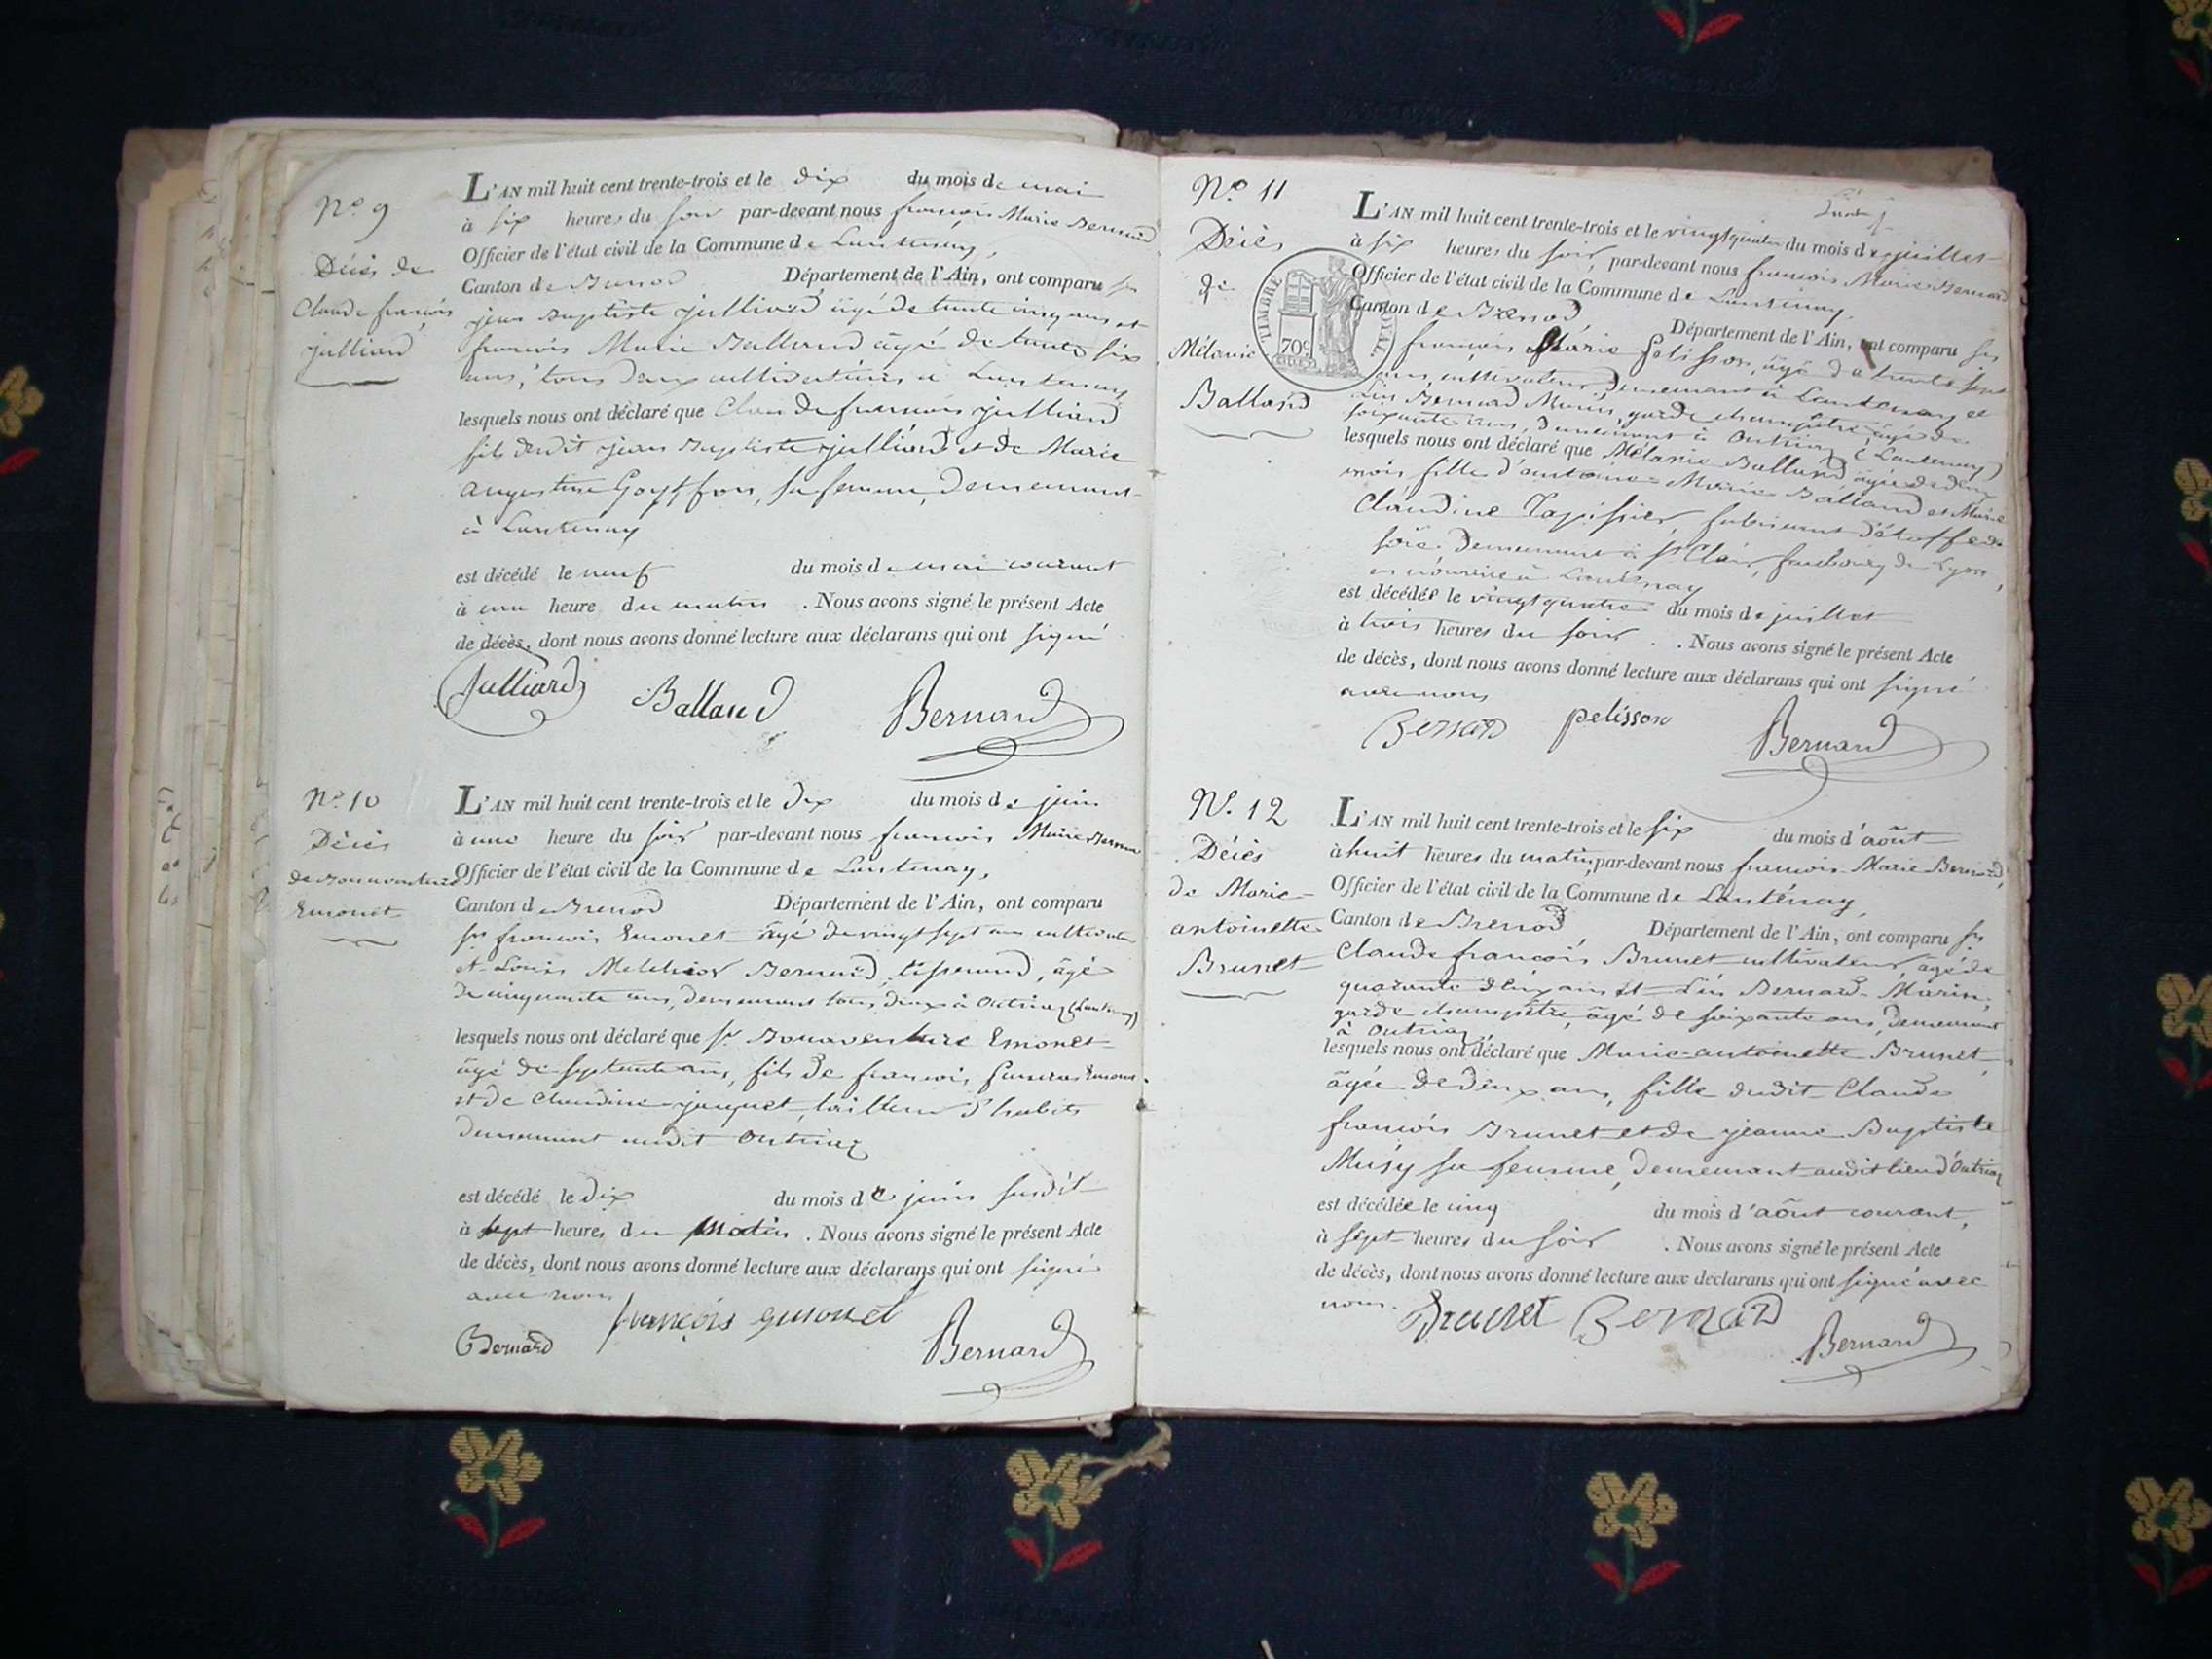 N.o 9
Décès de
Claude françois
julliard
L'AN mil huit cent trente-trois et le dix du mois de mai
à six heures du soir par-devant nous françois Marie Bernard
Officier de l'état civil de la Commune de Lantenay,
Canton de Brenod Département de l'Ain, ont comparu srs
jean Baptiste julliard âgé de trente cinq ans et
françois Marie Balland âgé de trente six
ans, tous deux cultivateurs à Lantenay
lesquels nous ont déclaré que Claude françois julliard
fils dudit jean Baptiste julliard et de Marie
augustine Goyffon, sa femme, demeurant
à Lantenay
est décédé le neuf du mois de mai courant
à une heure du matin . Nous avons signé le présent Acte
de décès, dont nous avons donné lecture aux déclarans qui ont signé
Julliard Balland Bernard
N.o 10
Décès
de Bonaventure
Emonet
L'AN mil huit cent trente-trois et le dix du mois de juin
à une heure du soir par-devant nous françois Marie Bernard
Officier de l'état civil de la Commune de Lantenay,
Canton de Brenod Département de l'Ain, ont comparu
srs françois Emonet âgé de vingt sept ans cultivateur
et Louis Melchior Bernard, tisserand, âgé
de cinquante ans, demeurant tous deux à Outriaz (Lantenay)
lesquels nous ont déclaré que sr Bonaventure Emonet
âgé de septante ans, fils de françois Emonet
et de Claudine jacquet, tailleur d'habits
demeurant audit Outriaz
est décédé le dix du mois de juin susdit
à sept heures du matin . Nous avons signé le présent Acte
de décès, dont nous avons donné lecture aux déclarans qui ont signé
avec nous
Bernard françois emonet Bernard
N.o 11
Décès
de
Mélanie
Balland
TIMBRE ROYAL
70c
L'AN mil huit cent trente-trois et le vingtquatre du mois de juillet
à six heures du soir, par-devant nous françois Marie Bernard
Officier de l'état civil de la Commune de Lantenay,
Canton de Brenod Département de l'Ain, ont comparu srs
françois Marie Pelisson, âgé de trente sept
ans, cultivateur, demeurant à Lantenay et
Lin Bernard Marin, garde champêtre, âgé de
soixante ans, demeurant à Outriaz (Lantenay)
lesquels nous ont déclaré que Mélanie Balland âgée de deux
mois fille d'antoine-Marie Balland et Marie
Claudine Tapissier, fabricant d'étoffe de
soie demeurant à St Clair, faubourg de Lyon,
en nourrice à Lantenay
est décédée le vingtquatre du mois de juillet
à trois heures du soir . Nous avons signé le présent Acte
de décès, dont nous avons donné lecture aux déclarans qui ont signé
avec nous
Bernard pelisson Bernard
N.o 12
Décès
de Marie-
antoinette
Brunet
L'AN mil huit cent trente-trois et le six du mois d'août
à huit heures du matin, par-devant nous françois-Marie Bernard,
Officier de l'état civil de la Commune de Lantenay,
Canton de Brenod Département de l'Ain, ont comparu srs
Claude françois Brunet cultivateur, âgé de
quarante deux ans et Lin Bernard-Marin,
garde champêtre, âgé de soixante ans, demeurant
à Outriaz,
lesquels nous ont déclaré que Marie-antoinette Brunet,
âgée de deux ans, fille dudit Claude
françois Brunet et de jeanne Baptiste
Musy sa femme, demeurant audit lieu d'Outriaz
est décédée le cinq du mois d'août courant,
à sept heures du soir . Nous avons signé le présent Acte
de décès, dont nous avons donné lecture aux déclarans qui ont signé avec
nous.
Brunet Bernard Bernard